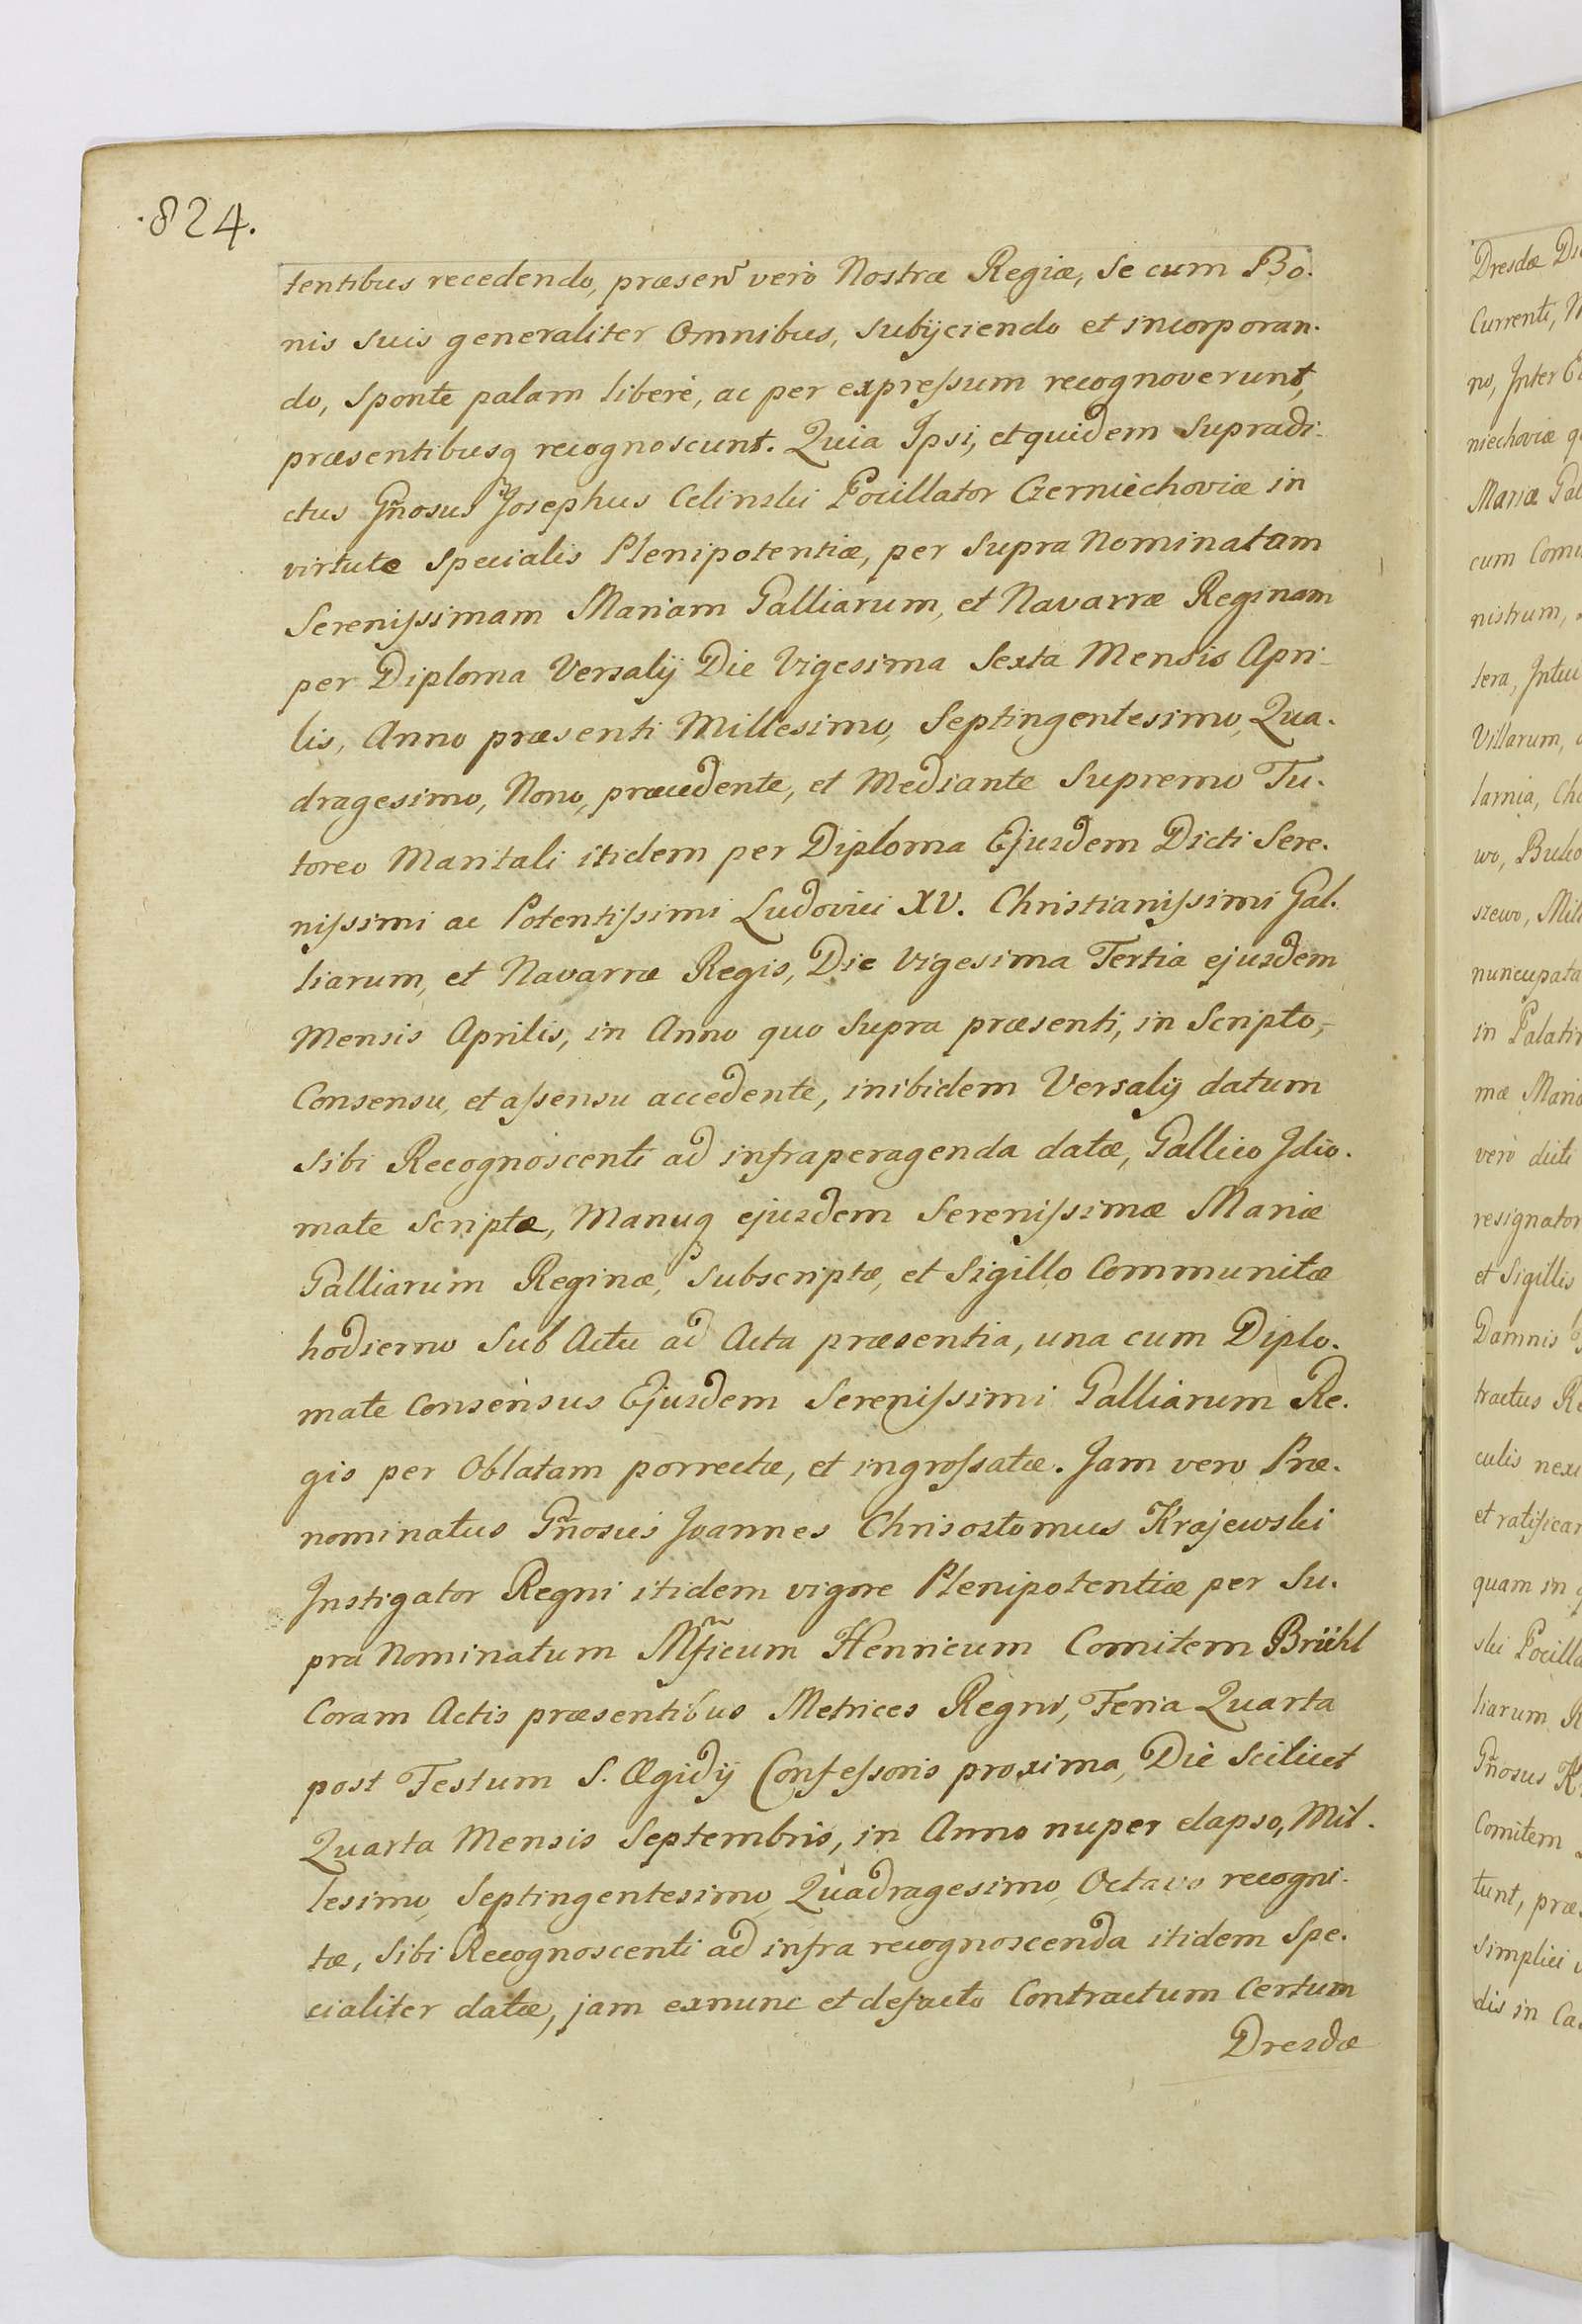 .824.
tentibus recedendo, præsenti vero Nostræ Regiæ, Se cum Bo.
nis suis generaliter Omnibus, subijciendo et incorporan.
do, Sponte palam liberè, ac per expreſsum recognoverunt,
præsentibusq recognoscunt. Quia Ipsi, et quidem Supradi.
ctus Gñosus Josephus Celinski Pocillator Czerniechoviæ in
virtute Specialis Plenipotentiæ, per Supra Nominatam
Sereniſsimam Mariam Galliarum, et Navarræ Reginam
per Diploma Versalij Die Vigesima Sexta Mensis Apri-
lis, Anno præsenti Millesimo, Septingentesimo, Qua.
dragesimo, Nono, præcedente, et Mediante Supremo Tu.
toreo Maritali itidem per Diploma Ejusdem Dicti Sere.
niſsimi ac Potentiſsimi Ludovici XV. Christianiſsimi Gal.
liarum, et Navarræ Regis, Die Vigesima Tertia ejusdem
Mensis Aprilis, in Anno quo Supra præsenti, in Scripto,-
Consensu, et aſsensu accedente, inibidem Versalij datum
Sibi Recognoscenti ad infraperagenda datæ, Gallico Idio.
mate Scriptæ, Manuq ejusdem Sereniſsimæ Mariæ
Galliarum Reginæ, Subscriptæ, et Sigillo Communitæ
hodierno Sub Actu ad Acta præsentia, una cum Diplo.
mate Consensus Ejusdem Sereniſsimi Galliarum Re.
gis per Oblatam porrectæ, et ingroſsatæ. Jam vero Præ.
nominatus Gñosus Joannes Chrisostomus Krajewski
Instigator Regni itidem vigore Plenipotentiæ per Su.
pra Nominatum Mf̃icum Henricum Comitem Brühl
Coram Actis præsentibus Metrices Regni, Feria Quarta
post Festum S. Ægidij Confeſsoris proxima, Die Scilicet
Quarta Mensis Septembris, in Anno nuper elapso, Mil.
lesimo, Septingentesimo, Quadragesimo, Octavo recogni.
tæ, Sibi Recognoscenti ad infra recognoscenda itidem Spe.
cialiter datæ, jam exnunc et defacto Contractum Certum
Dresdæ
Dresdæ
Currenti,
no, Inter
niechoviæ
Mariæ
cum
nistrum,
Villarum,
larnia,
wo,
szewo,
nuncupata
in
mæ
vero dicti
resignator
et Sigillis
Damnis
tractus
culis
et
quam in
ski
liarum
Gñosus
Comitem
tunt,
Simplici
dis in